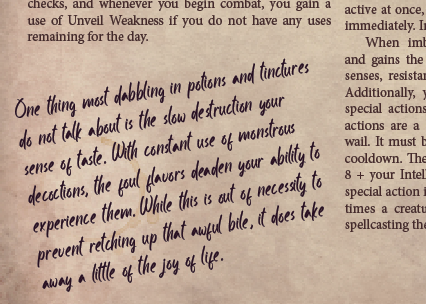 checks, and whenever you begin combat, you gain a
use of Unveil Weakness if you do not have any uses
remaining for the day.
One thing most dabbling in potions and tinctures
do not talk about is the slow destruction your
sense of taste. With constant use of monstrous
decoctions, the foul flavors deaden your ability to
experience them. While this is out of necessity to
prevent retching up that awful bile, it does take
away a little of the joy of life.
active at once,
immediately. In
When imb
and gains the
senses, resistan
Additionally, y
special actions
actions are a
wail. It must b
cooldown. The
8 + your Intell
special action i
times a creatu
spellcasting the